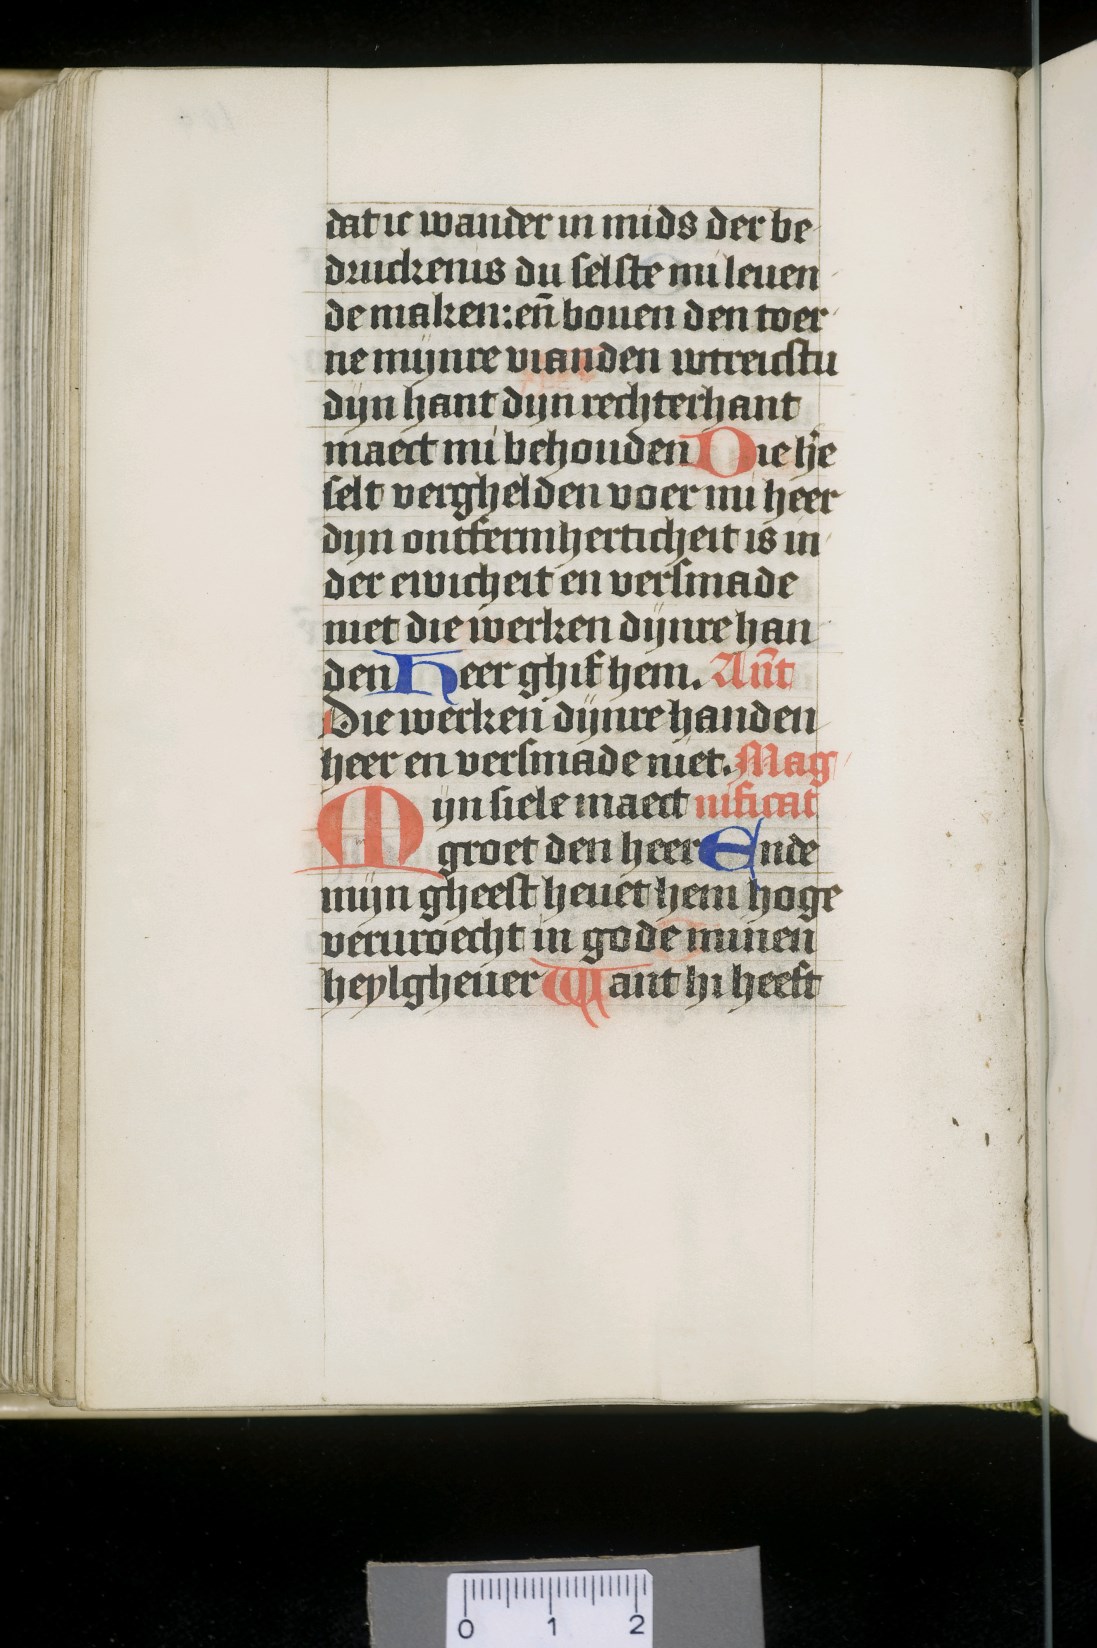 dat ic wander in mids der be
druckenis du selste mi leuen
de maken: en̄ bouen den toer
ne mijnre vianden wtreicstu
dijn hant dijn rechterhant
maect mi behouden Die he̅
selt verghelden voer mi heer
dijn ontfermherticheit is in
der ewicheit en versmade
niet die werken dijnre han
den Heer ghif hem. An̄t
Die werken dijnre handen
heer en versmade niet. Mag
Mijn siele maect nificat
groet den heer Ende
mijn gheest heuet hem hoge
veruroecht in gode minen
heylgheuer Want hi heeft
0 1 2